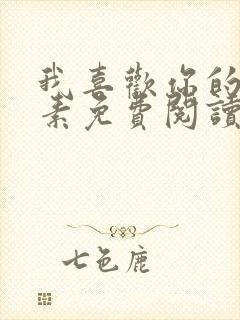 我喜歡你的
素免費閱讀
七色鹿